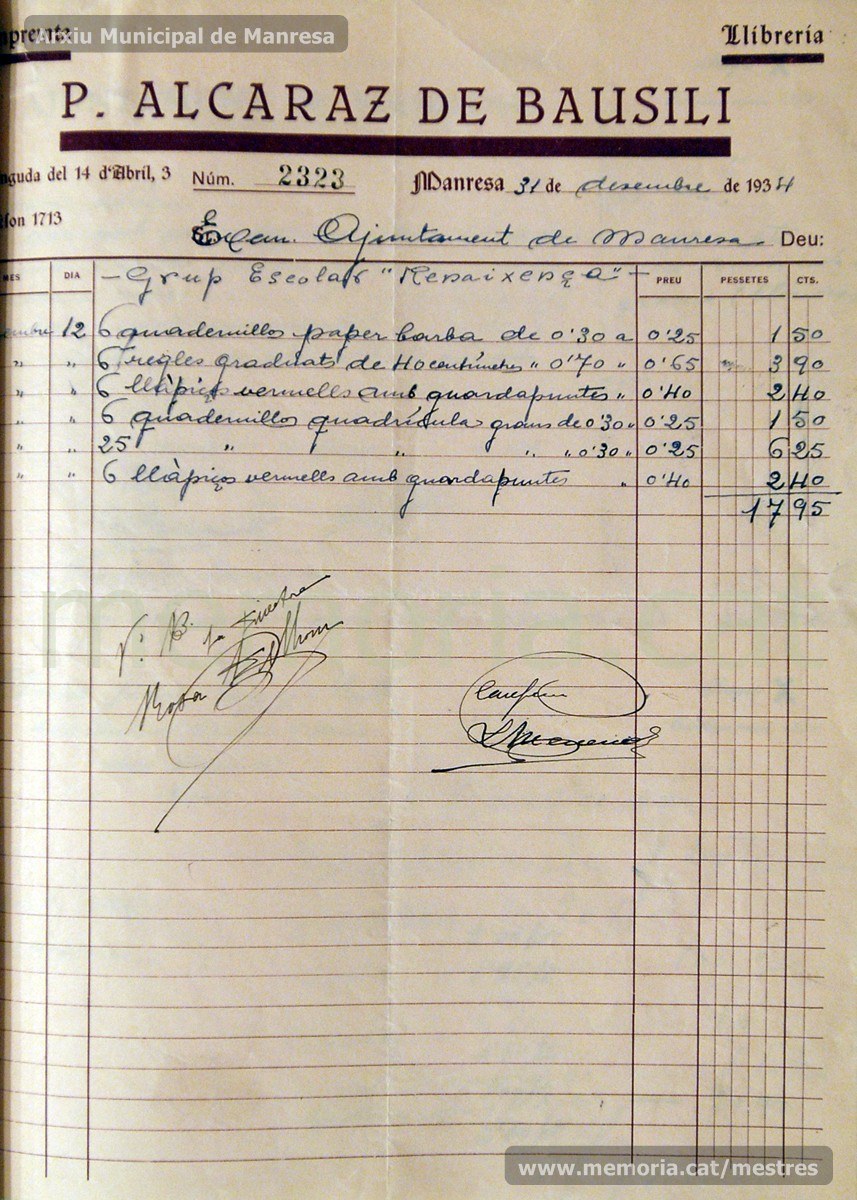 Arxiu Municipal de Manresa
Impremta Llibrería
P. ALCARAZ DE BAUSILI
nguda del 14 d'Abríl, 3 Núm. 2323 Manresa 31 de desembre de 1934
fon 1713
Excm. Ajuntament de Manresa Deu:
MES DIA PREU PESSETES CTS.
- Grup Escolar "Renaixença" -
embre 12 6 quadernillos paper barba de 0'30 a 0'25 1 50
" " 6 regles graduats de 40 centímetres " 0'70 " 0'65 3 90
" " 6 llàpiços vermells amb guardapuntes " 0'40 2 40
" " 6 quadernillos quadrícula grans de 0'30 " 0'25 1 50
" " 25 " " " " 0'30 " 0'25 6 25
" " 6 llàpiços vermells amb guardapuntes " 0'40 2 40
17 95
V. B. la Directora
Rosa
www.memoria.cat/mestres